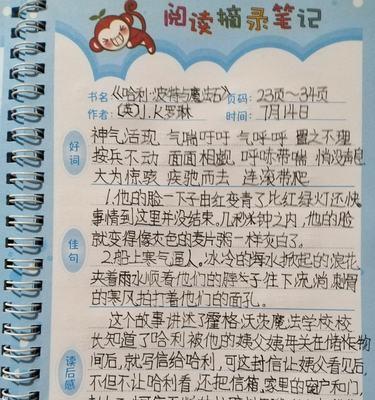 阅读摘录笔记
书名《哈利·波特与魔法石》 页码：23页～34页
作者：[英]J.K罗琳 时间：7月14日
好词
神气活现 气喘吁吁 气呼呼 置之不理
按兵不动 面面相觑 呼哧带喘 悄没声息
大为惊骇 疾驰而去 连滚带爬
佳句
1.他的脸一下子由红变青了比红绿灯还快
事情到这里并没结束。几秒钟之内，他的脸
就变得像灰色的麦片粥一样灰白了。
2.船上寒气逼人。冰冷的海水掀起的浪花
夹着雨水顺着他们的脖子往下流，刺骨
的寒风拍打着他们的面孔。
读后感
这个故事讲述了霍格沃茨魔法学校校
长知道了哈利被他的姨父姨母关在储物
间后，就写信给哈利，可这封信让姨父看见后，
不但不让哈利看，还把信箱、家里的窗户和门，